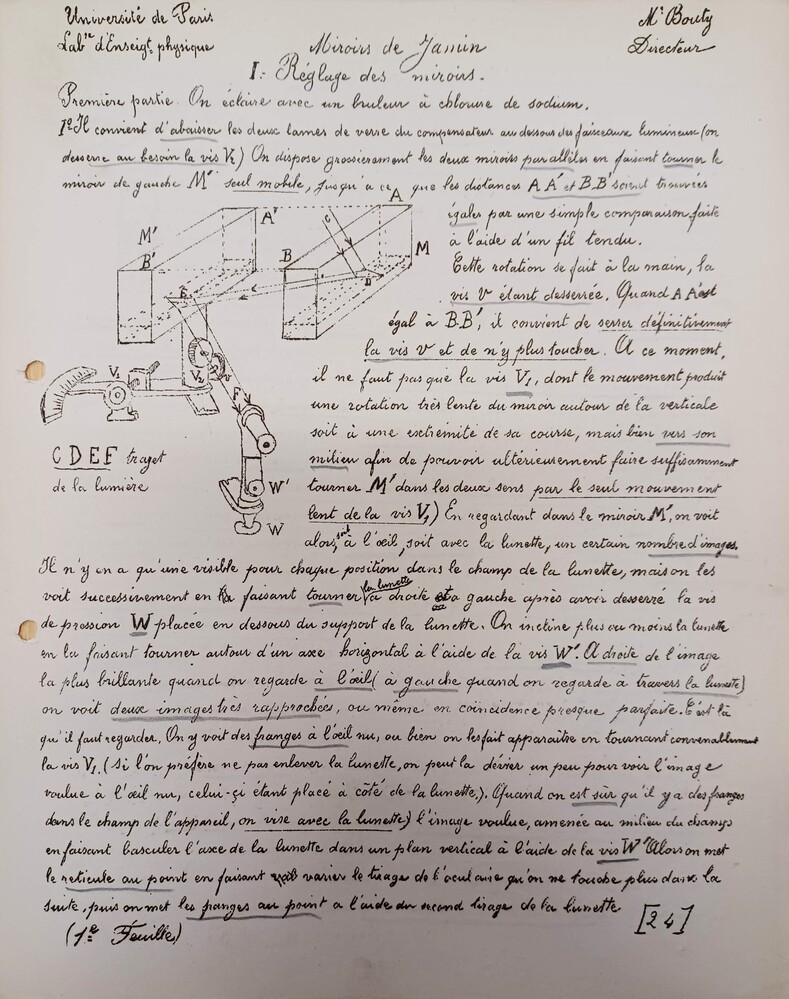 Université de Paris
Mr Bouty
Labre d'Enseigt physique
Directeur
Miroirs de Jamin
I. Réglage des miroirs.
Première partie. On éclaire avec un bruleur à chlorure de sodium.
1º Il convient d'abaisser les deux lames de verre du compensateur au dessous des faisceaux lumineux (on
desserre au besoin la vis V2) On dispose grossièrement les deux miroirs parallèles en faisant tourner le
miroir de gauche M' seul mobile, jusqu'a ce que les distances A A' et B.B' soient trouvées
égales par une simple comparaison faite
à l'aide d'un fil tendu.
Cette rotation se fait à la main, la
vis v étant desserrée. Quand A A' est
égal à B.B', il convient de serrer définitivement
la vis v et de n'y plus toucher. A ce moment,
il ne faut pas que la vis V1, dont le mouvement produit
une rotation très lente du miroir autour de la verticale
soit à une extrémité de sa course, mais bien vers son
milieu afin de pouvoir ultérieurement faire suffisamment
tourner M' dans les deux sens par le seul mouvement
lent de la vis V1) En regardant dans le miroir M', on voit
alors, soit à l'œil, soit avec la lunette, un certain nombre d'images.
A'
A
M'
B'
B
C
M
D
E
V1
V2
v
F
W'
W
C D E F trajet
de la lumière
Il n'y en a qu'une visible pour chaque position dans le champ de la lunette, mais on les
voit successivement en faisant tourner la lunette à droite ou a gauche après avoir desserré la vis
de pression W placée en dessous du support de la lunette. On incline plus ou moins la lunette
en la faisant tourner autour d'un axe horizontal à l'aide de la vis W'. A droite de l'image
la plus brillante quand on regarde à l'œil (à gauche quand on regarde à travers la lunette)
on voit deux images très rapprochées, ou même en coïncidence presque parfaite. C'est là
qu'il faut regarder. On y voit des franges à l'œil nu, ou bien on les fait apparaître en tournant convenablement
la vis V1. (Si l'on préfère ne pas enlever la lunette, on peut la dévier un peu pour voir l'image
voulue à l'œil nu, celui-çi étant placé à côté de la lunette.). Quand on est sûr qu'il y a des franges
dans le champ de l'appareil, on vise avec la lunette) l'image voulue, amenée au milieu du champ
en faisant basculer l'axe de la lunette dans un plan vertical à l'aide de la vis W' Alors on met
le reticule au point en faisant varier le tirage de l'oculaire qu'on ne touche plus dans la
suite, puis on met les franges au point a l'aide du second tirage de la lunette
(1e Feuille)
[24]